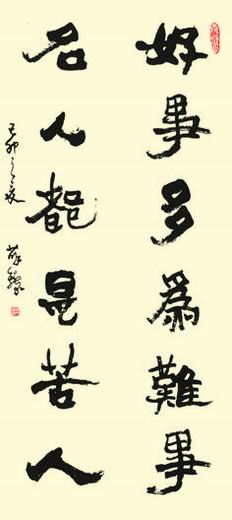 好事多為難事
名人都是苦人
己卯之